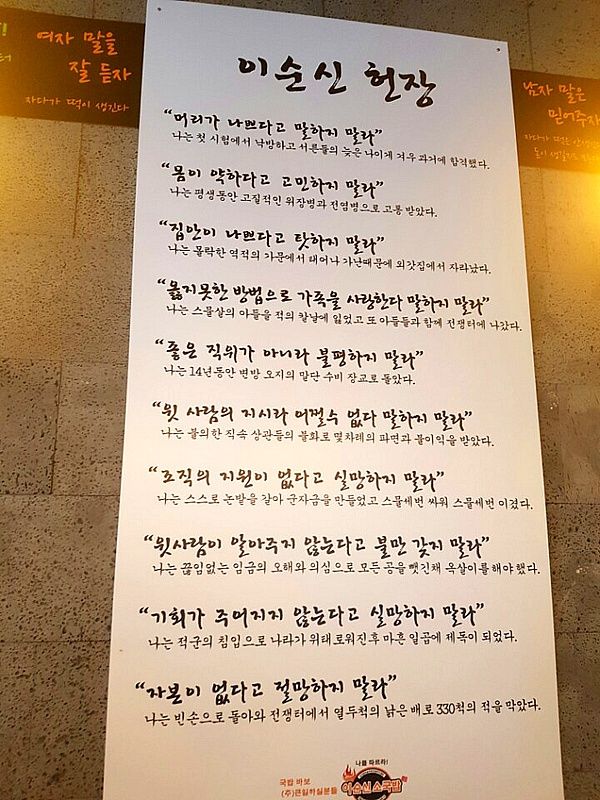 여자 말을
잘 듣자
자다가 떡이 생긴다
이순신 헌장
남자 말은
믿어주자
“머리가 나쁘다고 말하지 말라”
나는 첫 시험에서 낙방하고 서른둘의 늦은 나이게 겨우 과거에 합격했다.
“몸이 약하다고 고민하지 말라”
나는 평생동안 고질적인 위장병과 전염병으로 고통 받았다.
“집안이 나쁘다고 탓하지 말라”
나는 몰락한 역적의 가문에서 태어나 가난때문에 외갓집에서 자라났다.
“옳지못한 방법으로 가족을 사랑한다 말하지 말라”
나는 스물살의 아들을 적의 칼날에 잃었고 또 아들들과 함께 전쟁터에 나갔다.
“좋은 직위가 아니라 불평하지 말라”
나는 14년동안 변방 오지의 말단 수비 장교로 돌았다.
“윗 사람의 지시라 어쩔수 없다 말하지 말라”
나는 불의한 직속 상관들의 불화로 몇차례의 파면과 불이익을 받았다.
“조직의 지원이 없다고 실망하지 말라”
나는 스스로 논밭을 갈아 군자금을 만들었고 스물세번 싸워 스물세번 이겼다.
“윗사람이 알아주지 않는다고 불만 갖지 말라”
나는 끊임없는 임금의 오해와 의심으로 모든 공을 뺏긴채 옥살이를 해야 했다.
“기회가 주어지지 않는다고 실망하지 말라”
나는 적군의 침입으로 나라가 위태로워진후 마흔 일곱에 제독이 되었다.
“자본이 없다고 절망하지 말라”
나는 빈손으로 돌아와 전쟁터에서 열두척의 낡은 배로 330척의 적을 막았다.
나를 따르라!
국밥 바보
(주)큰일하실분들
이순신소국밥